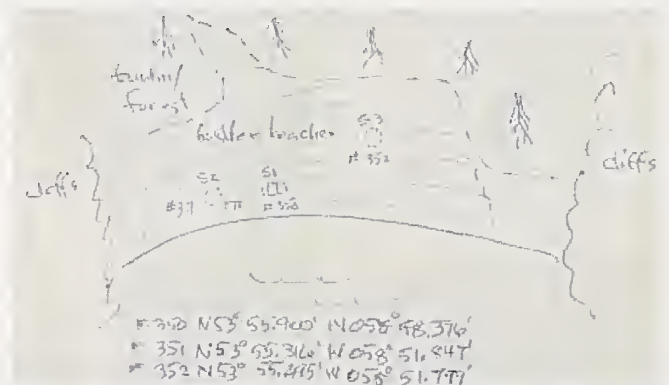 forest
boulder beaches
S3
# 352
cliffs
cliffs
S2
S1
# 350
# 350 N53° 55.900' W058° 58.376'
# 351 N53° 55.316' W 058° 51.847'
# 352 N53° W 058° 51.777'